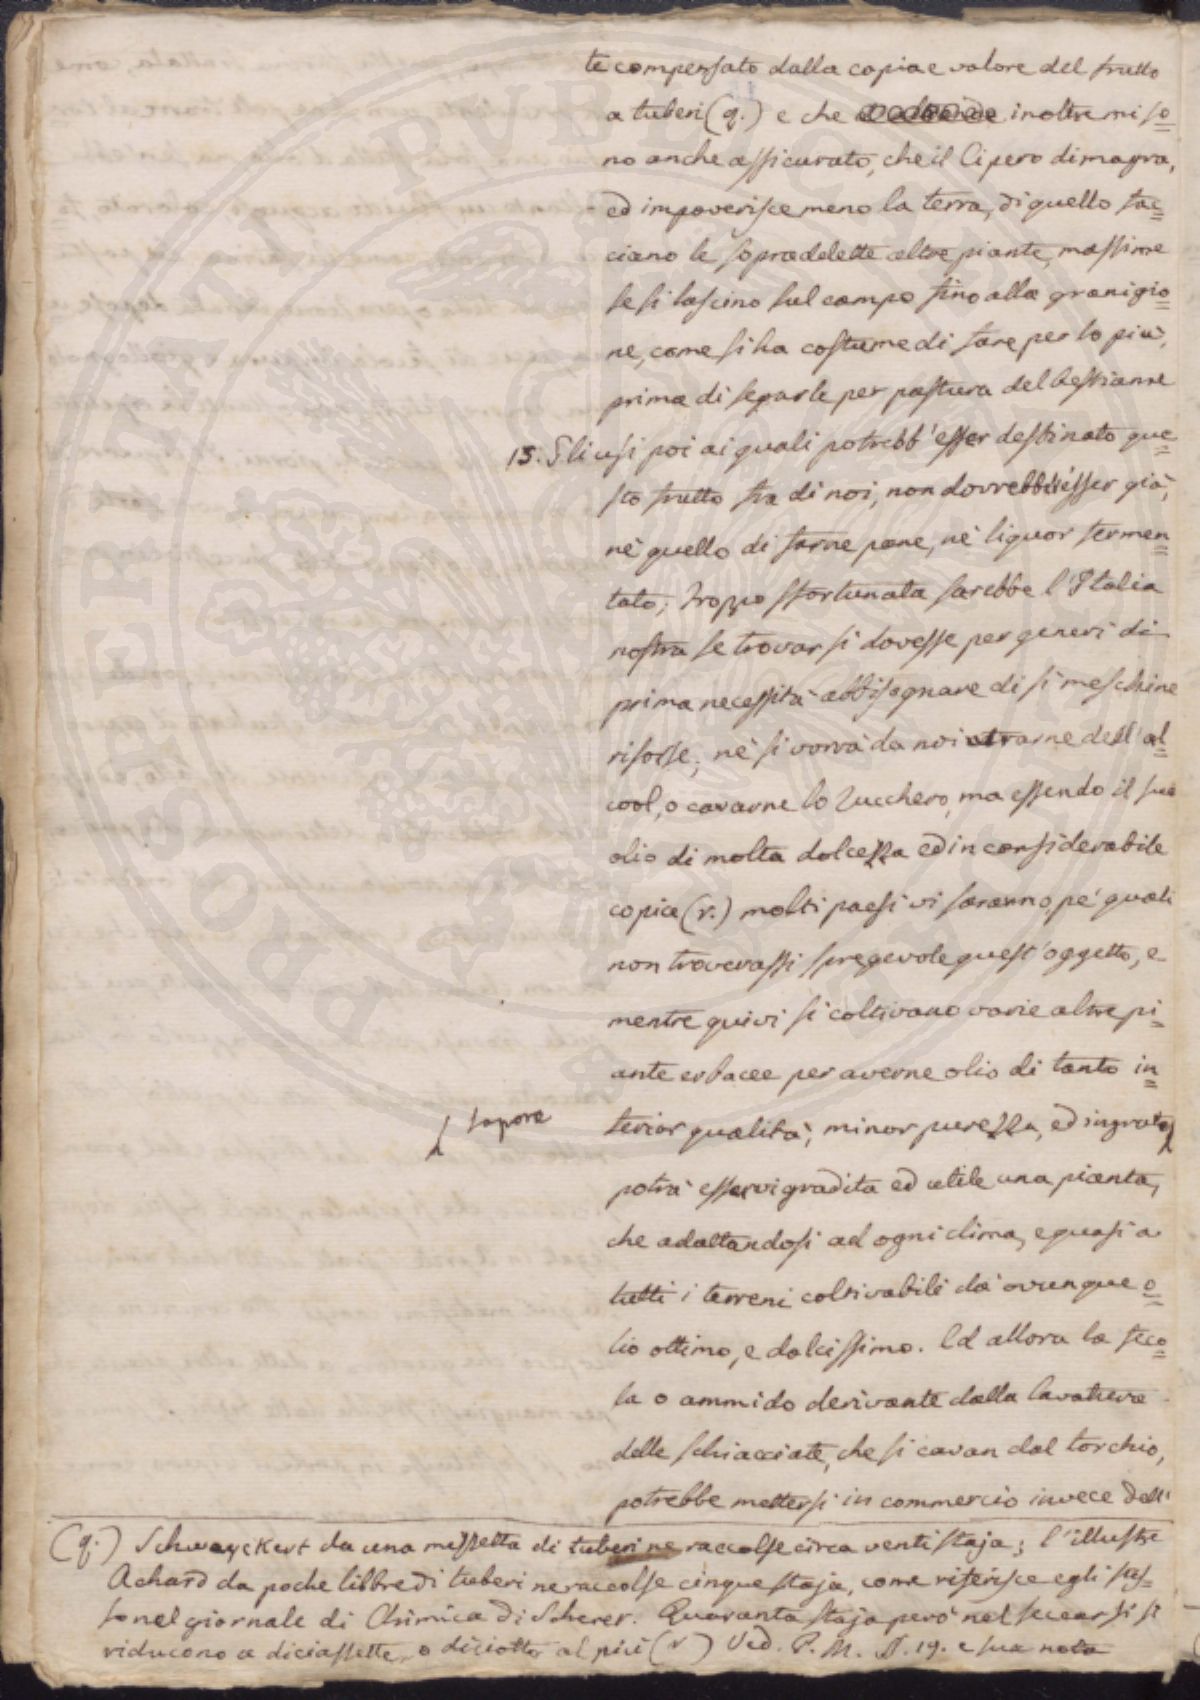 te compensato dalla copia e valore del frutto
a tuberi (q.) e che inoltre mi so=
no anche assicurato, che il Cipero dimagra,
ed impoverisce meno la terra, di quello fac=
ciano le sopradelette altre piante, massime
se si lascino sul campo fino alla granigio=
ne, come si ha costume di fare per lo più,
prima di segarle per pastura del bestiame
13. Gli usi poi ai quali potrebb'esser destinato que=
sto frutto fra di noi, non dovrebb'esser già,
nè quello di farne pane, nè liquor fermen=
tato; troppo sfortunata sarebbe l'Italia
nostra se trovar si dovesse per generi di
prima necessità abbisognare di sì meschine
risorse; nè si vorrà da noi trarne dell'al=
cool, o cavarne lo Zucchero, ma essendo il suo
olio di molta dolcezza ed in considerabile
copia (r.) molti paesi vi saranno pe' quali
non troverassi spregevole quest'oggetto, e
mentre quivi si coltivano varie altre pi=
ante erbacee per averne olio di tanto in=
ferior qualità, minor purezza, ed ingrato
sapore
potrà esservi gradita ed utile una pianta,
che adattandosi ad ogni clima, e quasi a
tutti i terreni coltivabili dà ovunque o=
lio ottimo, e dolcissimo. Ed allora la feco=
la o ammido derivante dalla lavatura
delle schiacciate, che si cavan dal torchio,
potrebbe mettersi in commercio invece dell'
(q.) Schwayckert da una mezzetta di tuberi ne raccolse circa venti staja; l'illustre
Achard da poche libbre di tuberi ne raccolse cinque staja, come riferisce egli stes=
so nel giornale di Chimica di Scherer. Quaranta staja però nel seccarsi si
riducono a diciassette, o diciotto al più (r) Ved. P. M. §. 19. e sua nota
PROPRIETÀ
PUBBLICA